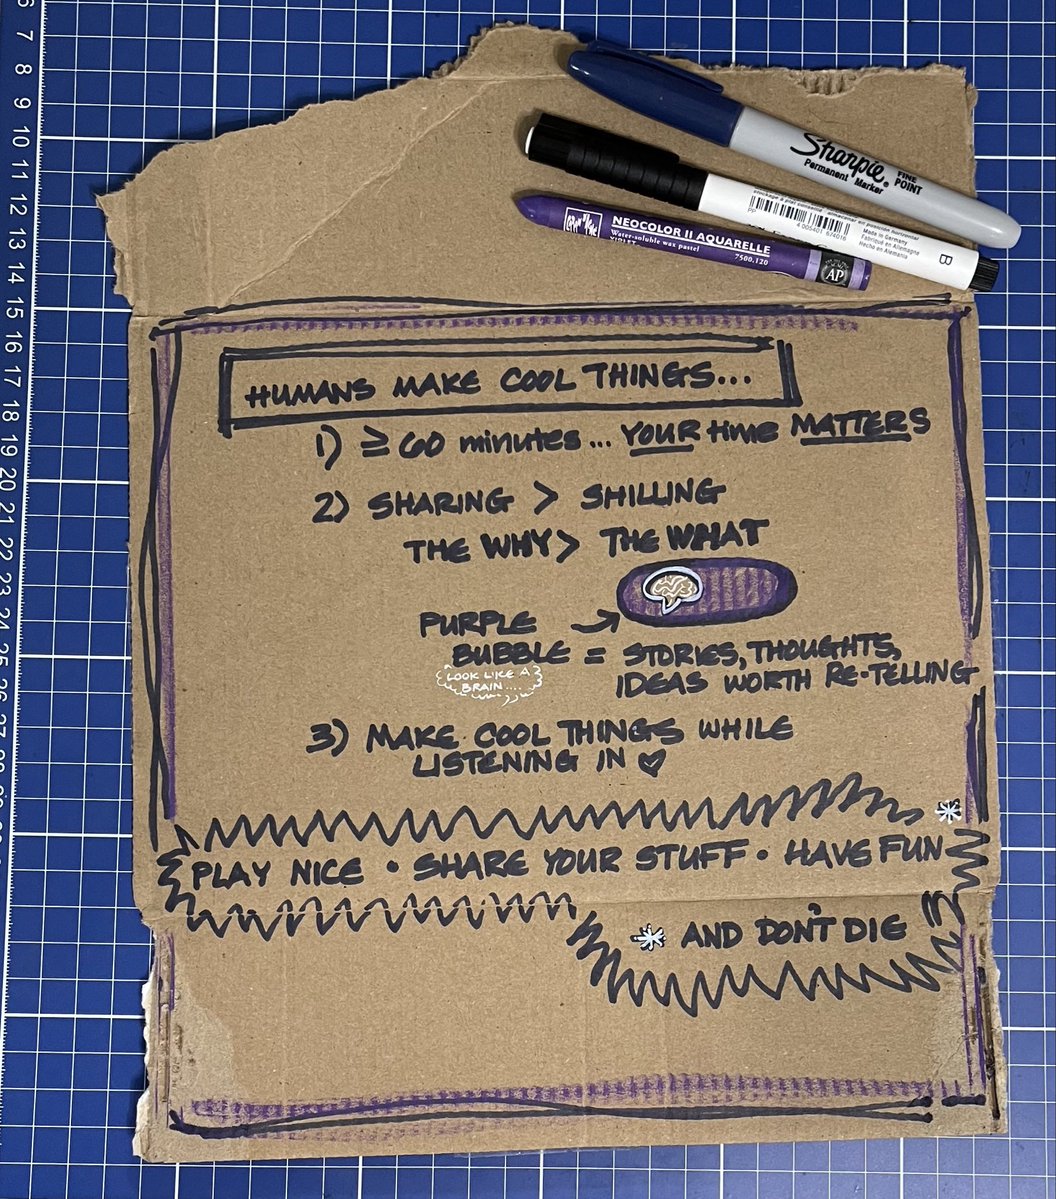 6
7
8
9
10
11
12
13
14
15
16
17
18
19
20
21
22
23
24
25
26
27
28
Sharpie®
FINE POINT
Permanent Marker
Made in Germany
Fabriqué en Allemagne
Hecho en Alemania
B
PP
4 005401 674016
NEOCOLOR II AQUARELLE
Water-soluble wax pastel
VIOLET
7500.120
AP
HUMANS MAKE COOL THINGS...
1) ≥ 60 minutes... YOUR time MATTERS
2) SHARING > SHILLING
THE WHY > THE WHAT
PURPLE
BUBBLE = STORIES, THOUGHTS,
IDEAS WORTH RE-TELLING
LOOK LIKE A
BRAIN....
3) MAKE COOL THINGS WHILE
LISTENING IN ♡
*
PLAY NICE • SHARE YOUR STUFF • HAVE FUN
* AND DON'T DIE